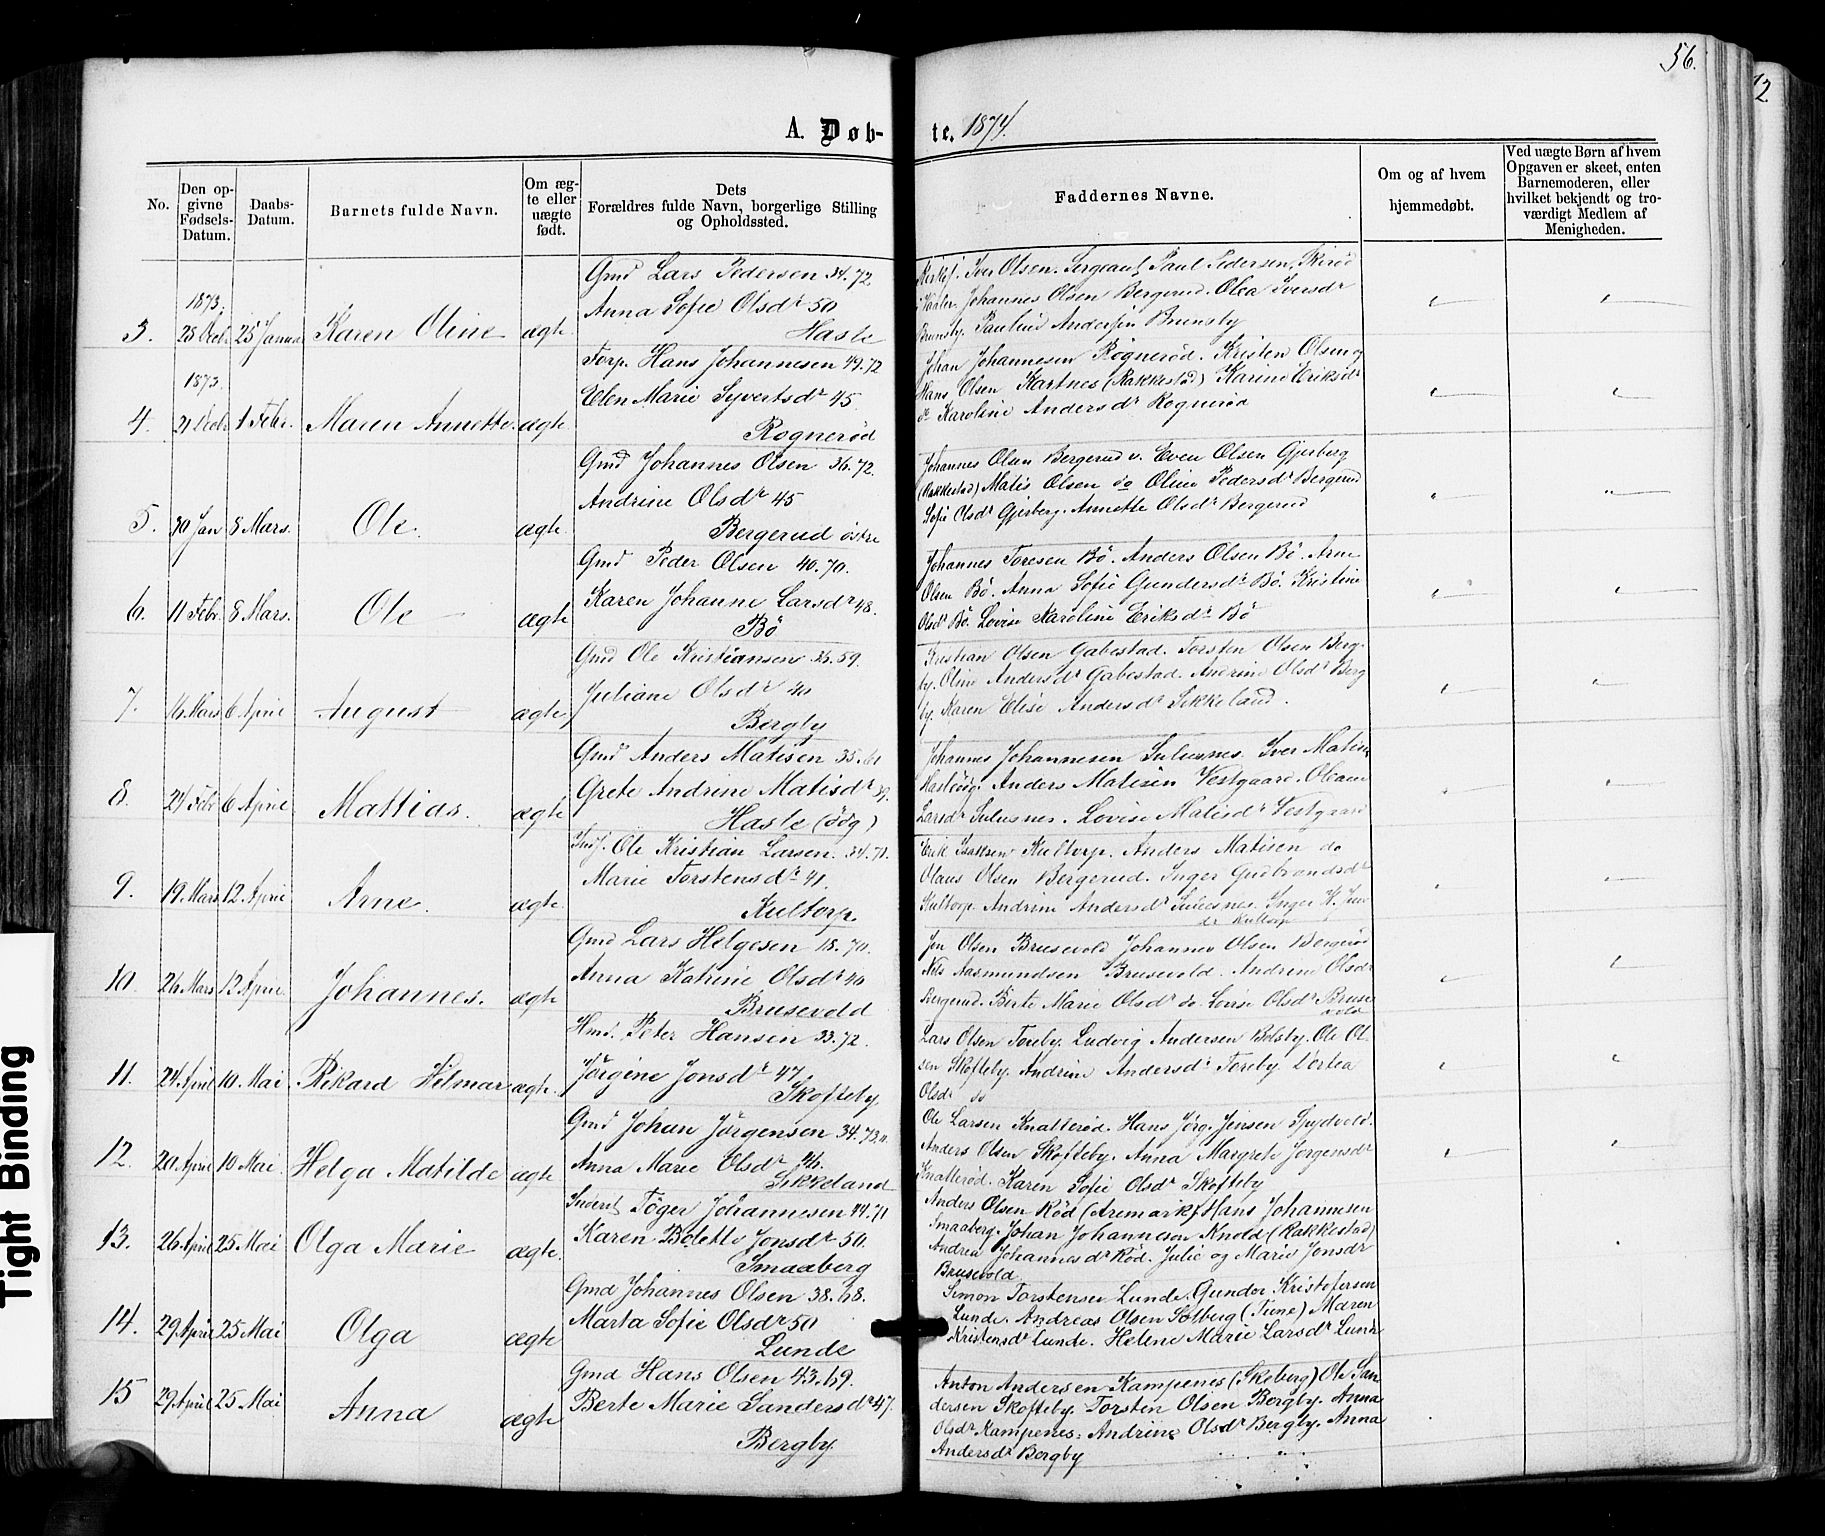 56.
12
A. Døb-
te. 1874.
No.
Den op-
givne
Fødsels-
Datum.
Daabs-
Datum.
Barnets fulde Navn.
Om æg-
te eller
uægte
født.
Dets
Forældres fulde Navn, borgerlige Stilling
og Opholdssted.
Faddernes Navne.
Om og af hvem
hjemmedøbt.
Ved uægte Børn af hvem
Opgaven er skeet, enten
Barnemoderen, eller
hvilket bekjendt og tro-
værdigt Medlem af
Menigheden.
1873.
3. 25 Janua Karen Oline ægte
Gmd Lars Pedersen 34.72
Anna Sofie Olsdr 50
Hasle
Iver Olsen. Sergeant Paul Pedersen,
Johannes Olsen Bergerud. Olea Iversdr
Brunsby. Pauline Andersen Brunsby
1873.
4. 1 Febr. Maren Annette. ægte
Torp. Hans Johannesen 49.72
Elen Marie Syvertsdr 45.
Rognerød
Johan Johannesen Rognerød. Kristen Olsen
Hans Olsen Kartnes (Rakkestad) Karine Eriksdr
do Karoline Andersdr Rognerød
5. 30 Jan 8 Mars. Ole. ægte
Gmd Johannes Olsen 36.72.
Andrine Olsdr 45
Bergerud østre
Johannes Olsen Bergerud v. Even Olsen Gjerberg
(Rakkestad) Matis Olsen do Oline Pedersdr Bergerud
Sofie Olsdr Gjerberg. Annette Olsdr Bergerud
6. 11 Febr. 8 Mars. Ole ægte
Gmd Peder Olsen 40.70.
Karen Johanne Larsdr 48.
Bö
Johannes Toresen Bö. Anders Olsen Bö. Arne
Olsen Bö. Anna Sofie Gundersdr Bö. Kristine
Olsdr Bö. Lovise Karoline Eriksdr Bö
7. 16 Mars 6 April August ægte
Gmd Ole Kristiansen 36.59.
Juliane Olsdr 40
Bergby
Kristian Olsen Gabestad. Torsten Olsen Berg-
by. Oline Andersdr Gabestad. Andrine Olsdr Berg
by. Karen Elise Andersdr Sikkeland.
8. 24 Febr 6 April Mattias. ægte
Gmd Anders Matisen 35.61
Grete Andrine Matisdr 39.
Hasle (ödg)
Johannes Johannesen Sulusnes. Iver Matisen
Anders Matisen Vestgaard.
Larsdr Sulusnes. Lovise Matisdr Vestgaard
9. 19. Mars 12 April Arne. ægte
Ole Kristian Larsen. 34.71.
Marie Torstensdr 41.
Kultorp.
Erik Isaksen Kultorp. Anders Matisen do
Olaus Olsen Bergerud. Inger Gudbrandsdr
Kultorp. Andrine Andersdr Sulusnes. Inger
Kultorp
10. 26 Mars 12 April. Johannes. ægte
Gmd Lars Helgesen 18.70.
Anna Katrine Olsdr 40
Brusevold
Jon Olsen Brusevold Johannes Olsen Bergerud
Nils Aasmundsen Brusevold. Andrine Olsdr
Bergerud. Berte Marie Olsdr do. Lovise Olsdr Bruse
vold
11. 24 April 10 Mai Rikard Hilmar ægte.
Hmd. Peter Hansen 33.72.
Jörgine Jonsdr 47.
Skofteby
Lars Olsen Toreby. Ludvig Andersen Bolsby. Ole Ol-
sen Skofteby. Andrine Andersdr Toreby Dortea
Olsdr do
12. 20 April 10 Mai. Helga Matilde ægte
Gmd Johan Jörgensen 34.73.
Anna Marie Olsdr 46.
Sikkeland
Ole Larsen Knatteröd. Hans Jörg. Jensen Spydvold.
Anders Olsen Skofteby. Anna Margrete Jörgensdr
Knatteröd. Karen Sofie Olsdr Skofteby
13. 26 April 25 Mai Olga Marie ægte.
Töger Johannesen 44.71
Karen Bolette Jonsdr 50.
Smaaberg
Anders Olsen Röd (Aremark) Hans Johannesen
Smaaberg. Johan Johannesen Knold (Rakkestad)
Andrea Johannesdr Röd. Julie og Marie Jonsdr
Brusevold
14. 29 April 25 Mai Olga ægte
Gmd Johannes Olsen 38.68.
Marta Sofie Olsdr 50
Lunde
Simon Torstensen Lunde. Gunder Kristofersen
Lunde. Andreas Olsen Solberg (Tune) Maren
Kristensdr Lunde. Helene Marie Larsdr Lunde
15 29 April 25 Mai Anna ægte
Gmd Hans Olsen 43.69.
Berte Marie Sandersdr 47.
Bergby
Anton Andersen Kampenes (Skeberg) Ole San
dersen Skofteby. Torsten Olsen Bergby. Anna
Olsdr Kampenes. Andrine Olsdr Bergby. Anna
Andersdr Bergby
Tight Binding